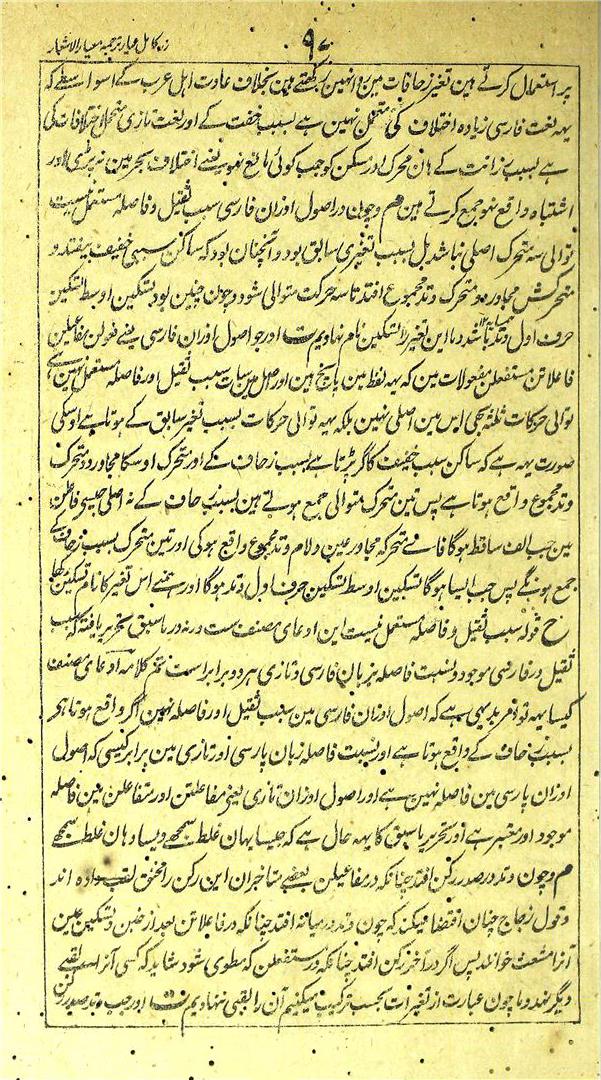 زر کامل عیار ترجمہ معیار الاشعار
۹۰
پر استعمال کرتے ہین تغیر زحافات مین روا نہین رکھتے ہین بخلاف عادت اہل عرب کے اسواسطے کہ
یہہ لغت فارسی زیادہ اختلاف کی متحمل نہین ہے بسبب خفت کے اور لغت تازی متحمل اختلافات کی
ہے بسبب رزانت کے ہان محرک اور مسکن کو جب کوئی مانع نہو یعنے اختلاف بحر مین نہ پڑے اور
اشتباہ واقع نہو جمع کرتے ہین م و چون در اصول اوزان فارسی سبب ثقیل و فاصلہ مستعمل نیست
توالی سہ متحرک اصلی نباشد بل بسبب تغیری سابق بود و آنچنان بود کہ ساکن سببی خفیف بیفتد و
متحرکش مجاور دو متحرک وتد مجموع افتد تا سہ حرکت متوالی شود و چون چنین بود تسکین اوسط تسکین
حرف اول وتد باشد و ما این تغیر را تسکین نام نہادیم ت اور جو اصول اوزان فارسی یعنے فعولن مفاعیلن
فاعلاتن مستفعلن مفعولات مین کہ یہہ لفظ مین پانچ ہین اور اصل مین سات سبب ثقیل اور فاصلہ مستعمل نہین ہے
توالی حرکات ثلثہ بھی اس مین اصلی نہین بلکہ یہہ توالی حرکات بسبب تغیر سابق کے ہوتا ہے اوسکی
صورت یہہ ہے کہ ساکن سبب خفیف کا گر پڑتا ہے بسبب زحاف کے اور متحرک اوسکا مجاور دو متحرک
وتد مجموع واقع ہوتا ہے پس تین متحرک متوالی جمع ہوتے ہین بسبب زحاف کے نہ اصلی جیسے فاعلن
مین جب الف ساقط ہوگا فاے متحرکہ مجاور عین و لام وتد مجموع واقع ہوگی اور تین متحرک بسبب زحاف کے
جمع ہونگے پس جب ایسا ہوگا تسکین اوسط تسکین حرف اول وتد ہوگا اور ہمنے اس تغیر کا نام تسکین رکھا
ح قولہ سبب ثقیل و فاصلہ مستعمل نیست این ادعای مصنف ست ورنہ در ما سبق تحریر یافتہ کہ سبب
ثقیل در فارسی موجود و نسبت فاصلہ بزبان فارسی و تازی ہر دو برابر است تم کلامہ ادعای مصنف
کیسا یہہ تو امر بدیہی ہے کہ اصول اوزان فارسی مین سبب ثقیل اور فاصلہ نہین اگر واقع ہوتا ہے
بسبب زحاف کے واقع ہوتا ہے اور نسبت فاصلہ زبان پارسی اور تازی مین برابر کیسی کہ اصول
اوزان پارسی مین فاصلہ نہین ہے اور اصول اوزان تازی یعنے مفاعلتن اور متفاعلن مین فاصلہ
موجود اور معتبر ہے اور تحریر ما سبق کا یہہ حال ہے کہ جیسا یہان غلط سمجھے ویسا وہان غلط سمجھے
م و چون وتد در صدر رکن افتد چنانکہ در مفاعیلن بعضے متاخران این رکن را مخنق لقب دادہ اند
و قول زجاج چنان اقتضا میکند کہ چون وتد در میانہ افتد چنانکہ در فاعلاتن بعد از خبن و تسکین عین
آنرا مشعث خوانند پس اگر در آخر رکن افتد چنانکہ در مستفعلن کہ مطوی شود شاید کہ کسی آنرا لقبے
دیگر نہد و ما چون عبارت از تغیرات بحسب ترکیب میکنیم آن را لقبی ننہادیم ت اور جب وتد صدر رکن